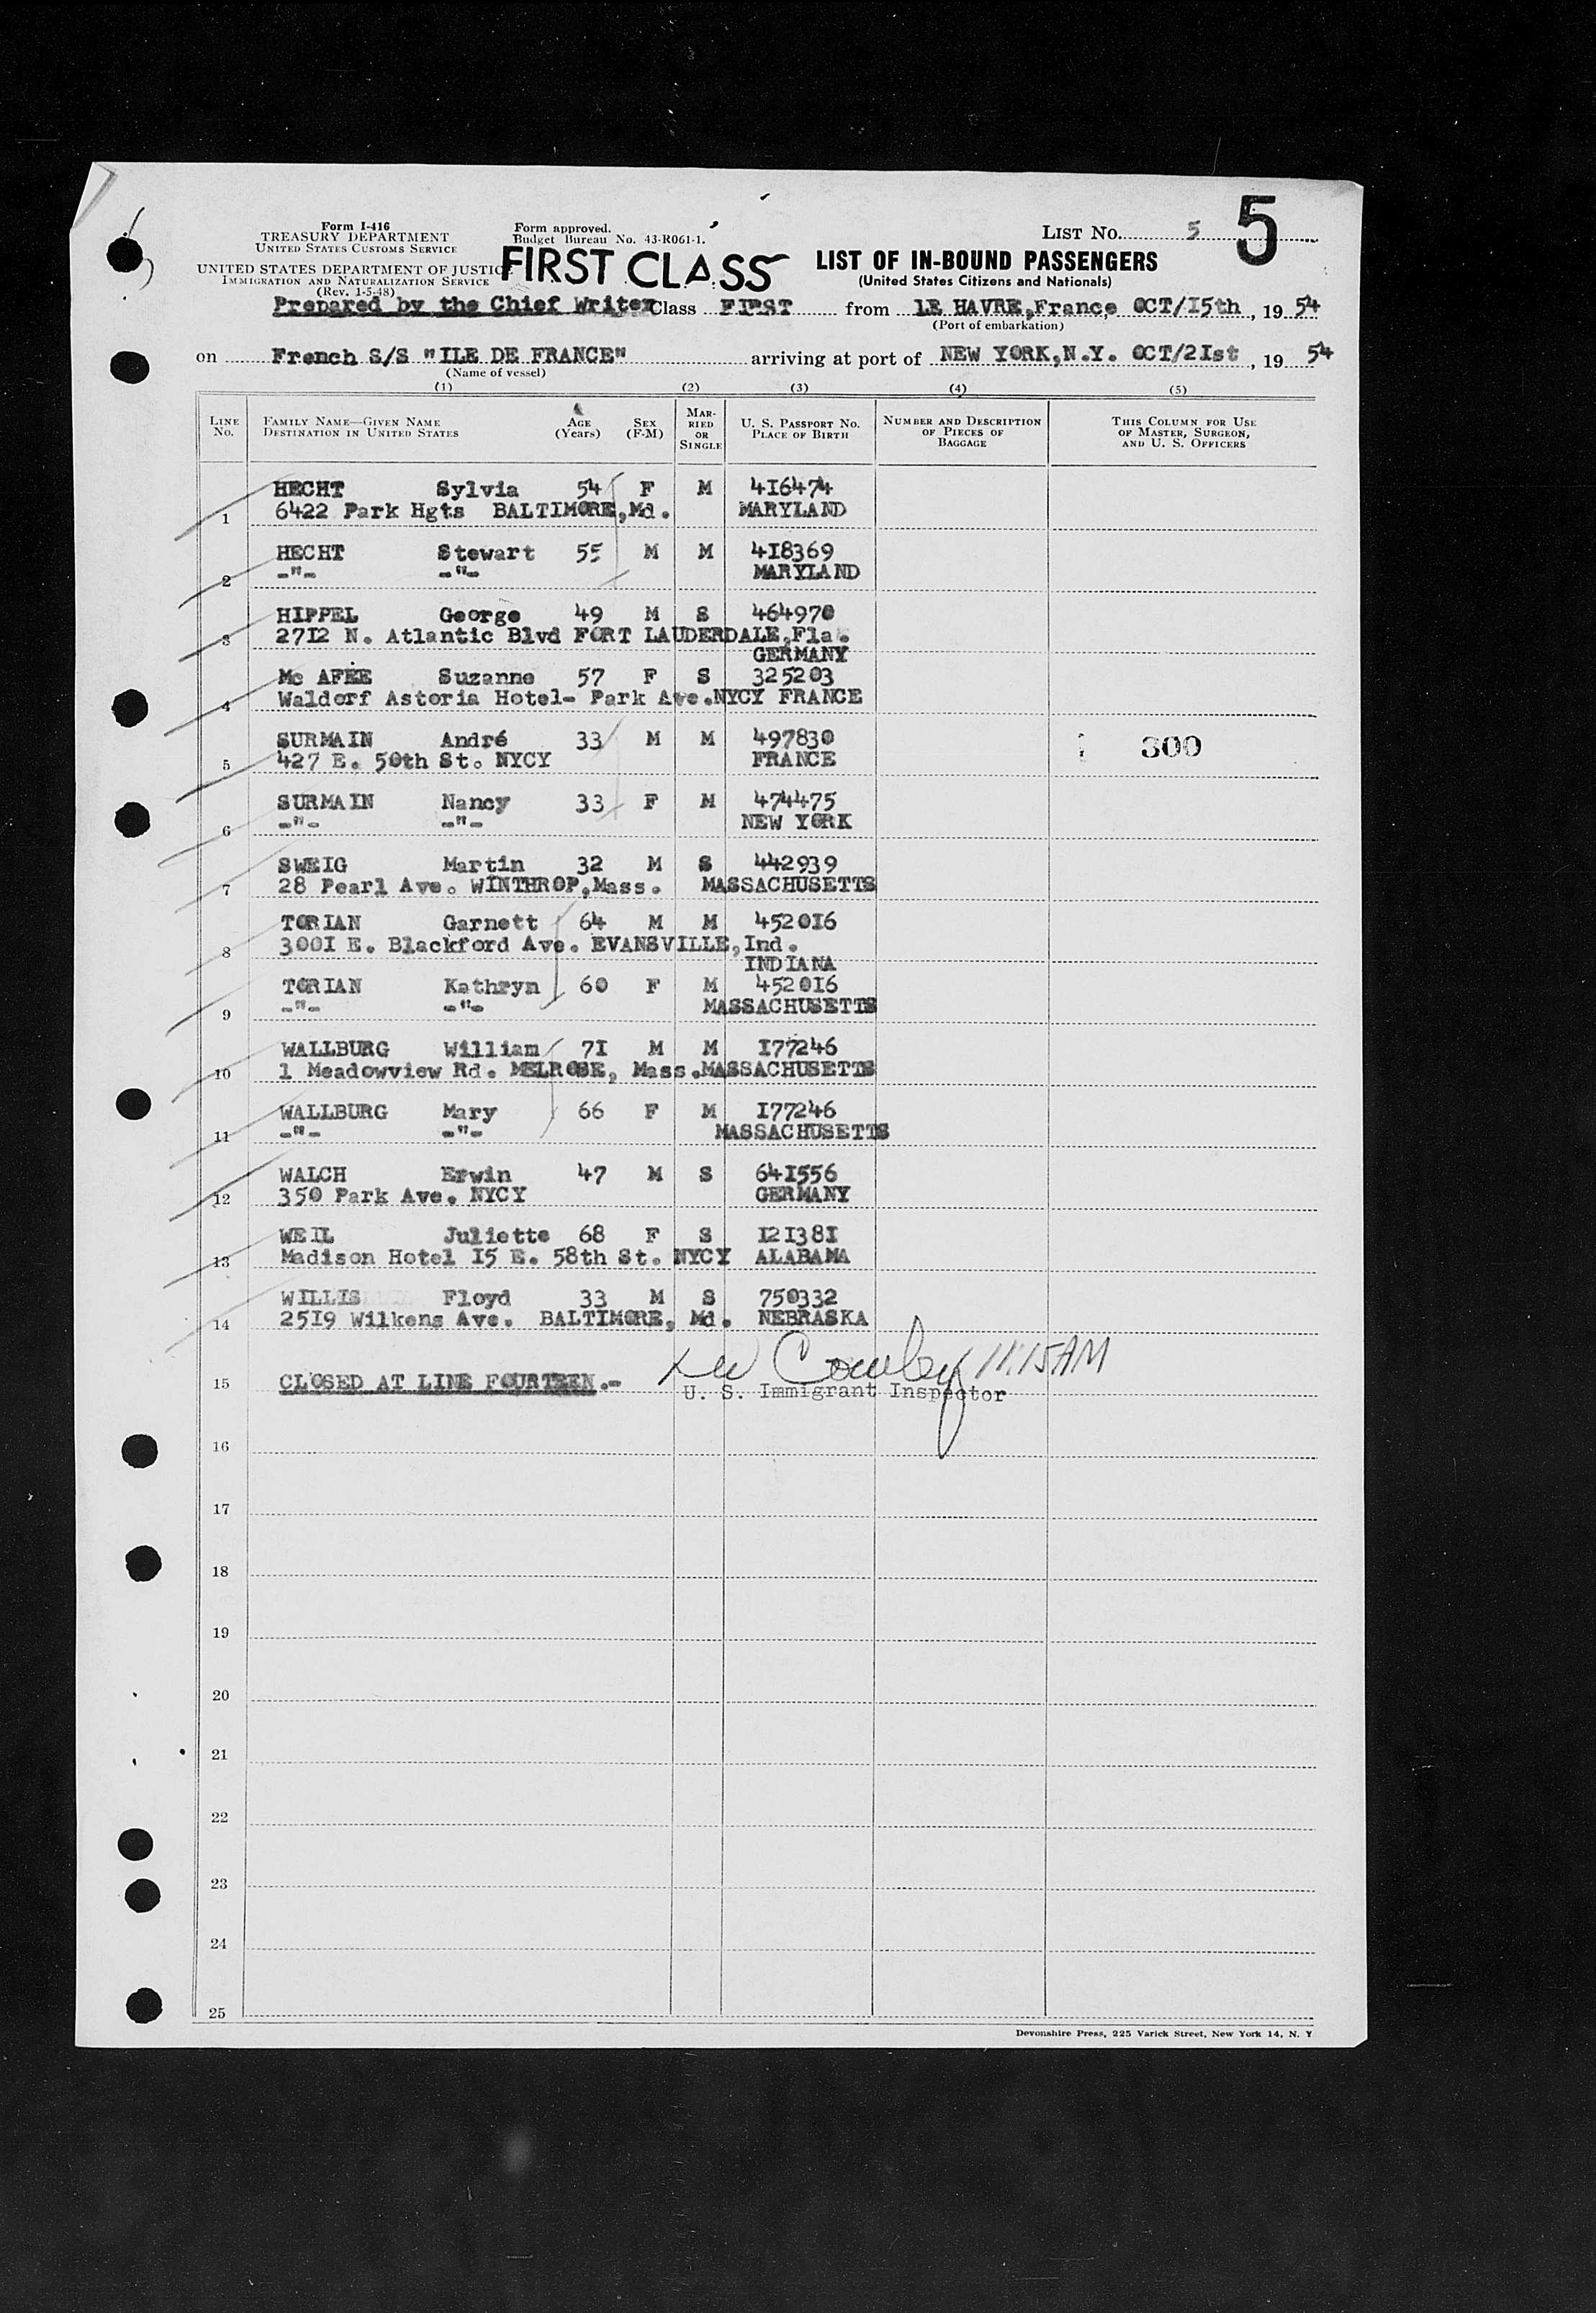 Form I-416
TREASURY DEPARTMENT
UNITED STATES CUSTOMS SERVICE
UNITED STATES DEPARTMENT OF JUSTICE
IMMIGRATION AND NATURALIZATION SERVICE
(Rev. 1-5-48)
Form approved.
Budget Bureau No. 43-R061-1.
FIRST CLASS
LIST NO. 5
5
LIST OF IN-BOUND PASSENGERS
(United States Citizens and Nationals)
Prepared by the Chief Writer Class FIRST from LE HAVRE, France, OCT/I5th, 19 54
(Port of embarkation)
on French S/S "ILE DE FRANCE" arriving at port of NEW YORK, N.Y. OCT/2Ist, 19 54
(Name of vessel)
(1) (2) (3) (4) (5)
LINE NO. FAMILY NAME—GIVEN NAME DESTINATION IN UNITED STATES AGE (Years) SEX (F-M) MARRIED OR SINGLE U. S. PASSPORT NO. PLACE OF BIRTH NUMBER AND DESCRIPTION OF PIECES OF BAGGAGE THIS COLUMN FOR USE OF MASTER, SURGEON, AND U. S. OFFICERS
HECHT Sylvia 54 F M 4I6474
1 6422 Park Hgts BALTIMORE, Md. MARYLAND
HECHT Stewart 55 M M 4I8369
2 -"- -"- MARYLAND
HIPPEL George 49 M S 464970
3 27I2 N. Atlantic Blvd FORT LAUDERDALE, Fla.
GERMANY
Mc AFEE Suzanne 57 F S 325203
4 Waldorf Astoria Hotel- Park Ave. NYCY FRANCE
SURMAIN André 33 M M 497830 300
5 427 E. 50th St. NYCY FRANCE
SURMAIN Nancy 33 F M 474475
6 -"- -"- NEW YORK
SWEIG Martin 32 M S 442939
7 28 Pearl Ave. WINTHROP, Mass. MASSACHUSETTS
TORIAN Garnett 64 M M 4520I6
8 300I E. Blackford Ave. EVANSVILLE, Ind.
INDIANA
TORIAN Kathryn 60 F M 4520I6
9 -"- -"- MASSACHUSETTS
WALLBURG William 7I M M I77246
10 1 Meadowview Rd. MELROSE, Mass. MASSACHUSETTS
WALLBURG Mary 66 F M I77246
11 -"- -"- MASSACHUSETTS
WALCH Erwin 47 M S 64I556
12 350 Park Ave. NYCY GERMANY
WEIL Juliette 68 F S I2I38I
13 Madison Hotel I5 E. 58th St. NYCY ALABAMA
WILLIS Floyd 33 M S 750332
14 25I9 Wilkens Ave. BALTIMORE, Md. NEBRASKA
Cowley 11:15AM
15 CLOSED AT LINE FOURTEEN.-
U. S. Immigrant Inspector
16
17
18
19
20
21
22
23
24
25
Devonshire Press, 225 Varick Street, New York 14, N. Y